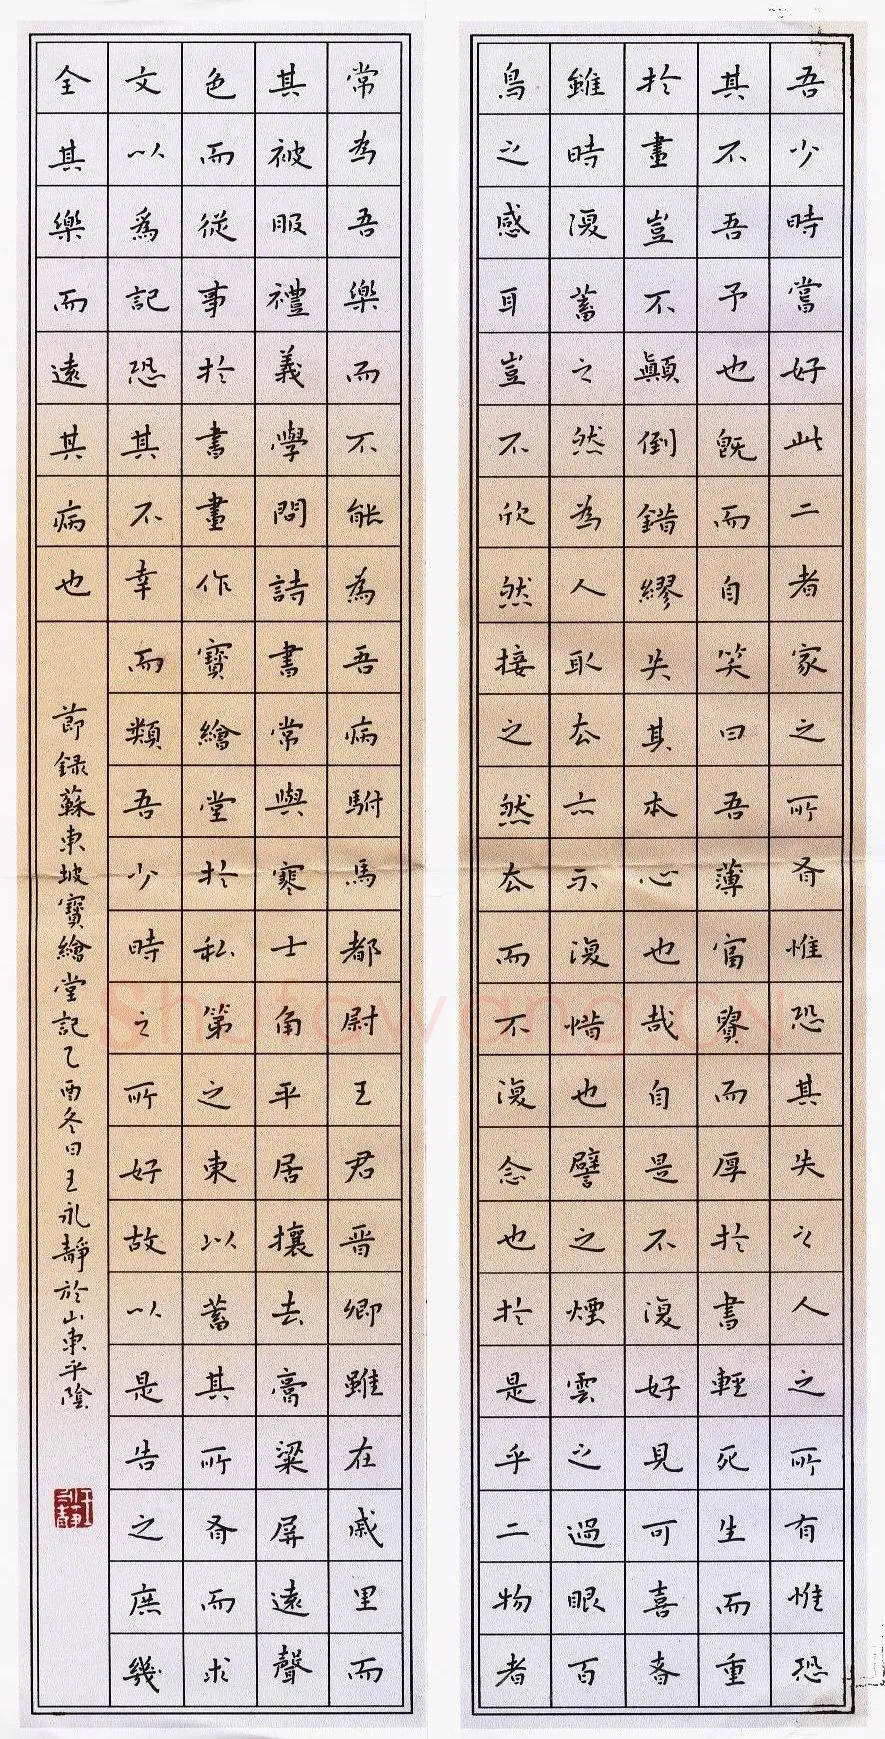 吾少時嘗好此二者家之所有惟恐其失之人之所有惟恐
其不吾予也既而自笑曰吾薄富貴而厚於書輕死生而重
於畫豈不顛倒錯繆失其本心也哉自是不復好見可喜者
雖時復蓄之然為人取去亦不復惜也譬之煙雲之過眼百
鳥之感耳豈不欣然接之然去而不復念也於是乎二物者
常為吾樂而不能為吾病駙馬都尉王君晉卿雖在戚里而
其被服禮義學問詩書常與寒士角平居攘去膏粱屏遠聲
色而從事於書畫作寶繪堂於私第之東以蓄其所有而求
文以爲記恐其不幸而類吾少時之所好故以是告之庶幾
全其樂而遠其病也
節録蘇東坡寶繪堂記乙酉冬日王永靜於山東平陰
王永靜
Shufawang.CN